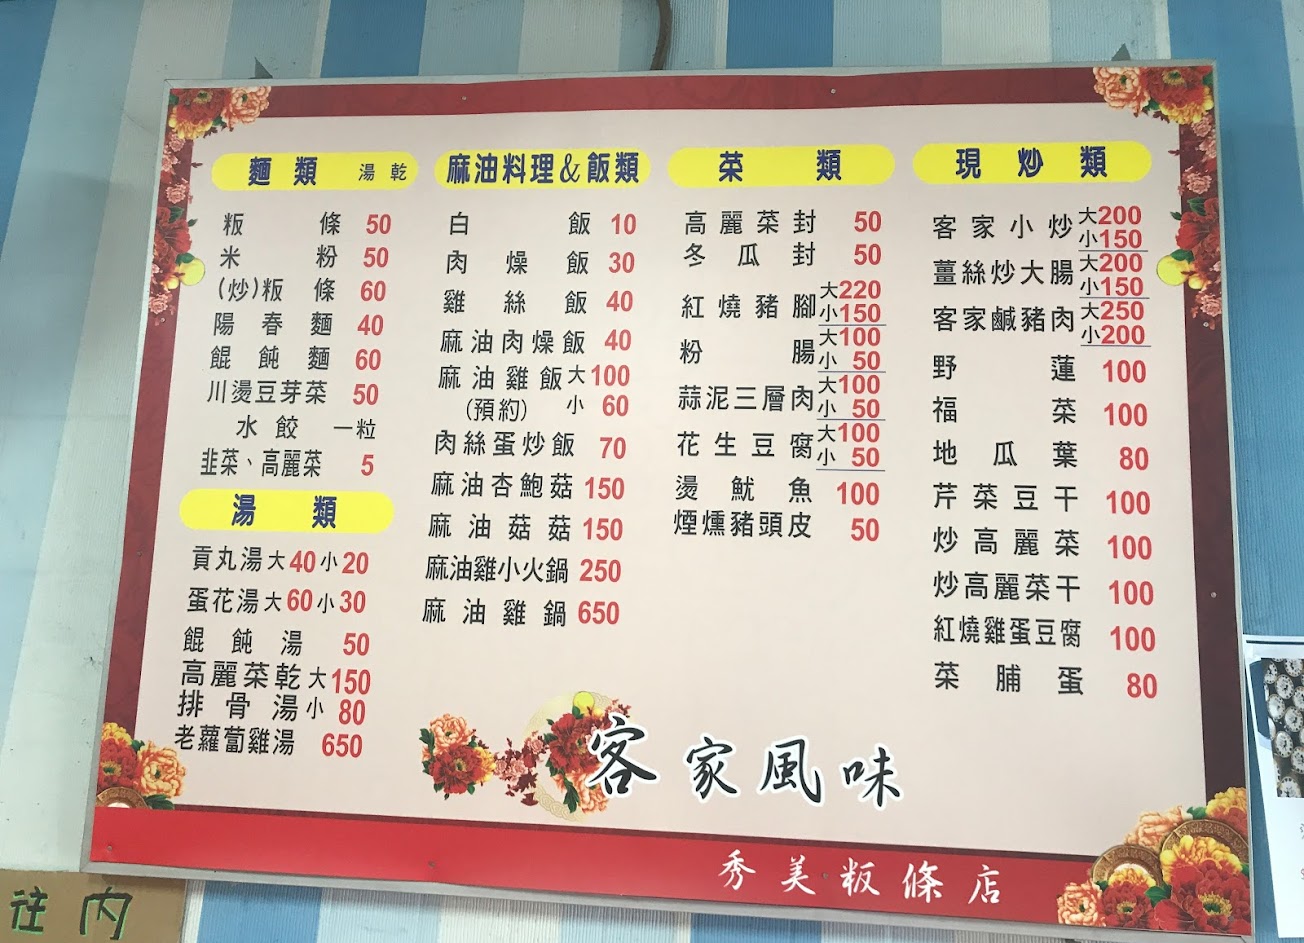 麵類 湯乾
粄條 50
米粉 50
(炒)粄條 60
陽春麵 40
餛飩麵 60
川燙豆芽菜 50
水餃 一粒
韭菜、高麗菜 5
湯類
貢丸湯大40小20
蛋花湯大60小30
餛飩湯 50
高麗菜乾大150
排骨湯小80
老蘿蔔雞湯 650
麻油料理&飯類
白飯 10
肉燥飯 30
雞絲飯 40
麻油肉燥飯 40
麻油雞飯大100
(預約) 小60
肉絲蛋炒飯 70
麻油杏鮑菇 150
麻油菇菇 150
麻油雞小火鍋 250
麻油雞鍋 650
菜類
高麗菜封 50
冬瓜封 50
紅燒豬腳大220
小150
粉腸大100
小50
蒜泥三層肉大100
小50
花生豆腐大100
小50
燙魷魚 100
煙燻豬頭皮 50
現炒類
客家小炒大200
小150
薑絲炒大腸大200
小150
客家鹹豬肉大250
小200
野蓮 100
福菜 100
地瓜葉 80
芹菜豆干 100
炒高麗菜 100
炒高麗菜干 100
紅燒雞蛋豆腐 100
菜脯蛋 80
客家風味
秀美粄條店
往內